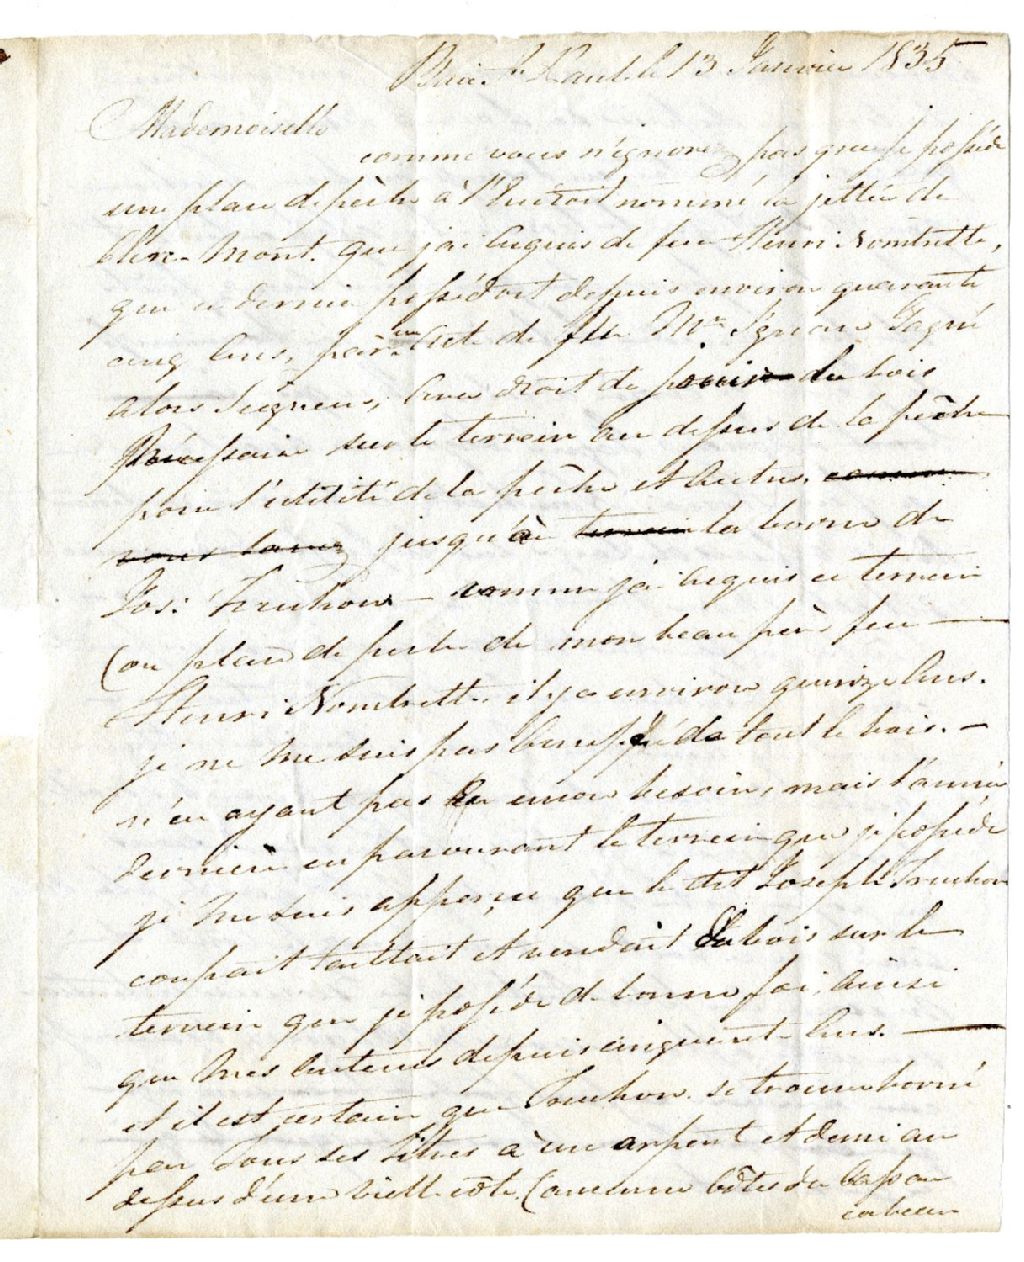 Baie St Paul le 13 Janvier 1835
Mademoiselle
comme vous n'ignorez pas que je possède
une place de pêche à l'Endroit nommé la jettée de
que j'ai acquis de feu Henri Nombrette,
que ce dernier possédoit depuis environ quarante
cinq ans, par un acte de feu Mr Tagné
alors Seigneur, avec droit de du bois
sur le terrein au dessus de la pêche
pour l'utilité de la pêche, et autres,
vous jusqu'à la borne de
Jos: Truchon — comme j'ai acquis ce terrein
(ou place de peche de mon beau père feu —
Henri Nombrette il y a environ quinze ans.
je ne me suis pas de tout le bois. —
n'en ayant pas eu encor besoin, mais l'année
dernière en parcourant le terrein que je possède
je me suis apperçu que le dit Joseph Truchon
coupait et vendait du bois sur le
terrein que je possède de bonne foi, ainsi
que mes auteurs depuis cinquante ans. —
et il est certain que Truchon se trouve borné
par tous ses titres à un arpent et demi au
dessus d'une vielle côte, (ancienne